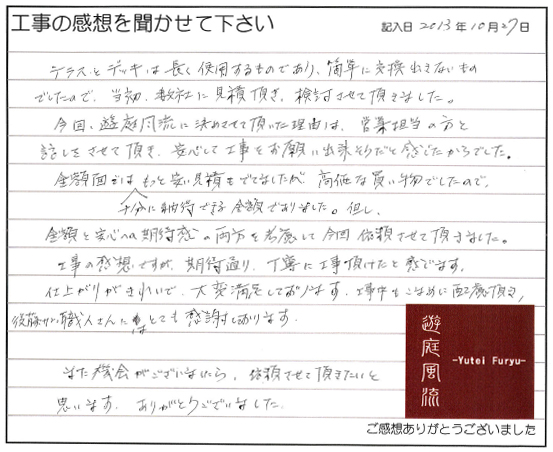 工事の感想を聞かせて下さい
記入日 2013年10月27日
テラスとデッキは長く使用するものであり、簡単に交換出きないもの
でしたので、当初、数社に見積頂き、検討させて頂きました。
今回、遊庭風流に決めさせて頂いた理由は、営業担当の方と
話しをさせて頂き、安心して工事をお願い出来そうだと感じたからでした。
金額面ではもっと安い見積もでてましたが、高価な買い物でしたので、
十分に納得できる金額でありました。但し、
金額と安心への期待感の両方を考慮して今回依頼させて頂きました。
工事の感想ですが、期待通り、丁寧に工事頂けたと感じてます。
仕上がりがきれいで、大変満足しております。工事中もこまめに配慮頂き、
後藤さん 職人さんにはとても感謝しております。
また機会がございましたら、依頼させて頂きたいと
思います。ありがとうございました。
遊庭風流
-Yutei Furyu-
ご感想ありがとうございました